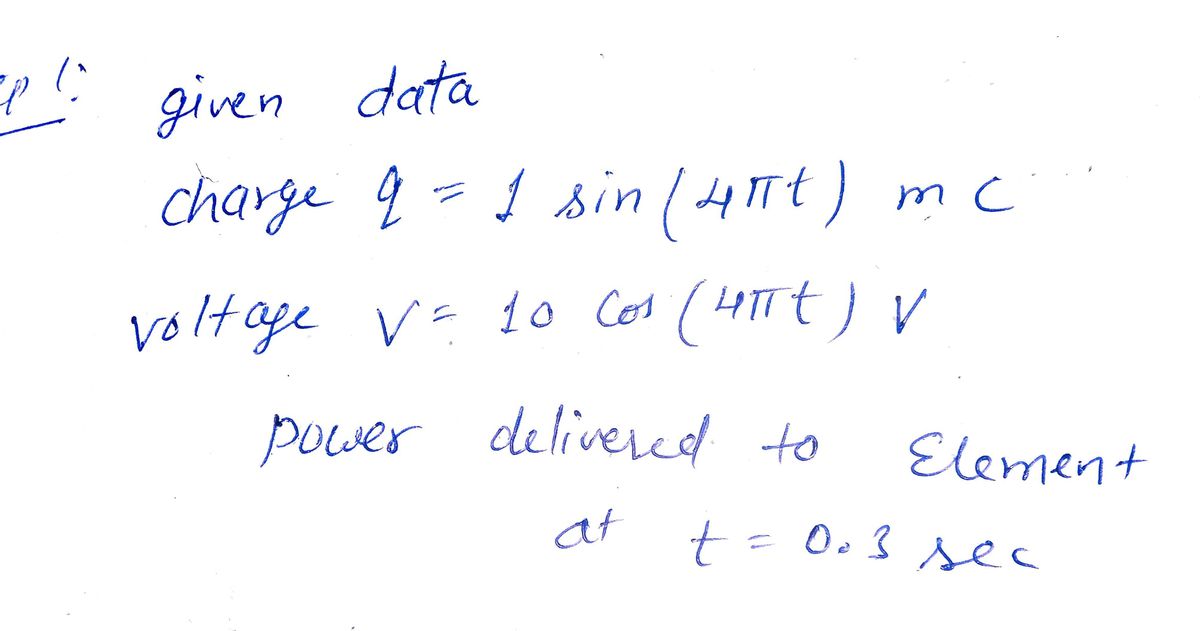 given data
charge q = 1 sin(4πt) mC
voltage V = 10 Cos(4πt) V
power delivered to Element
at t = 0.3 sec